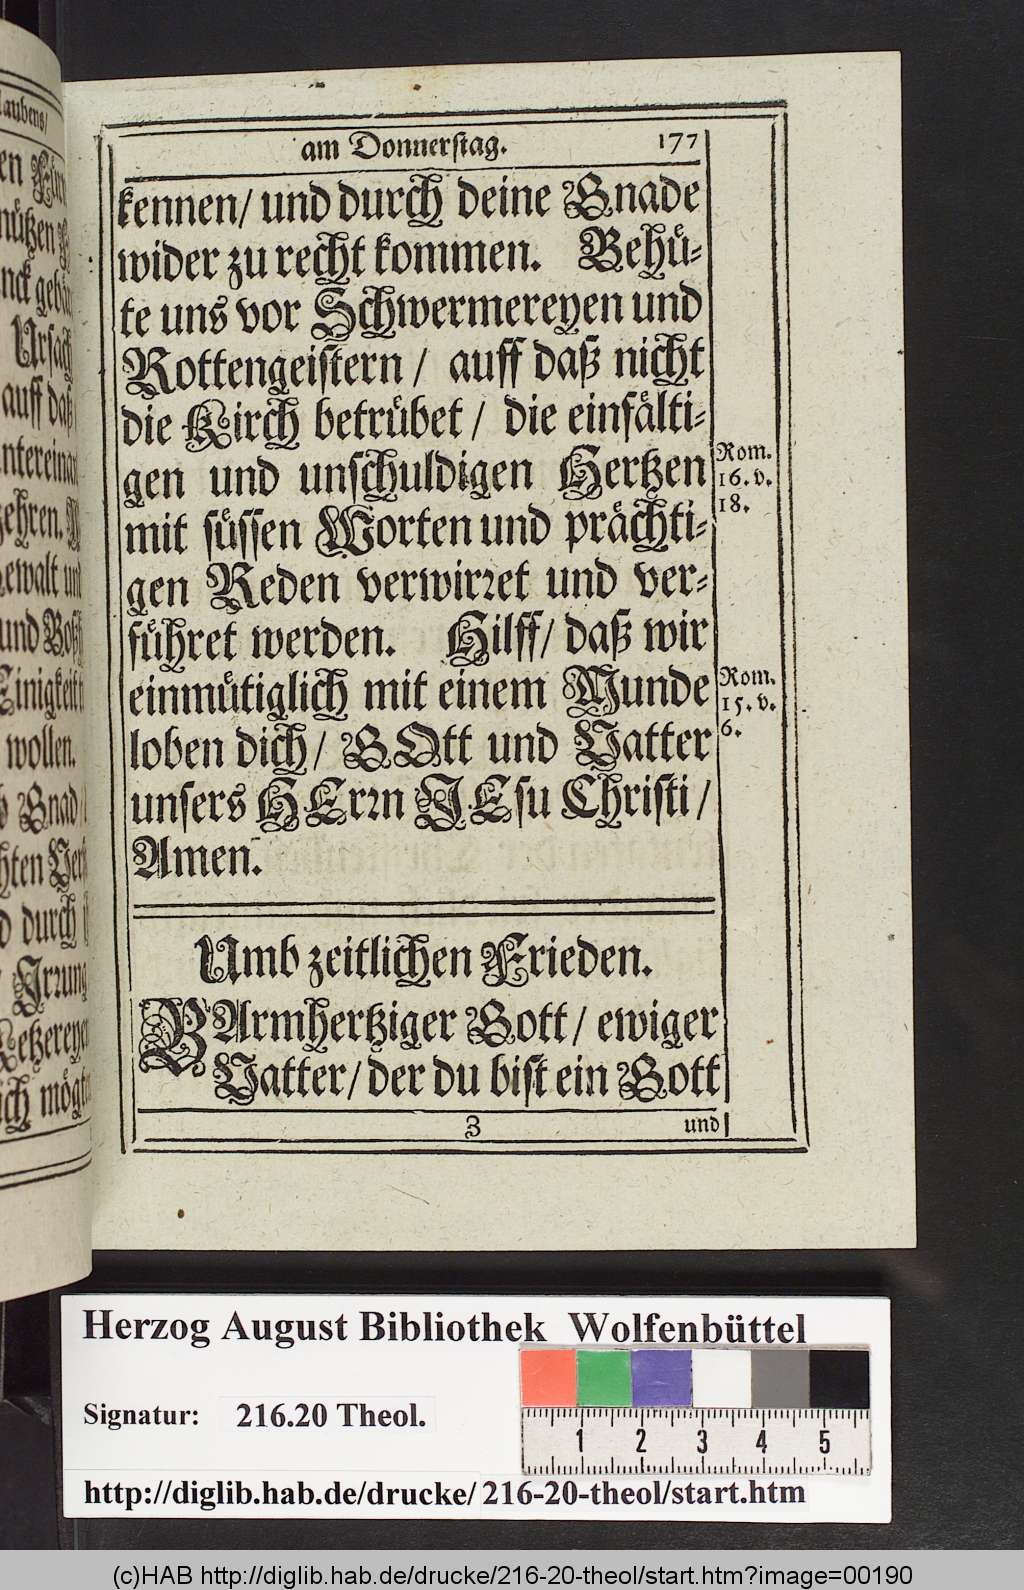 laubens/
nützen
nck
Ursach
auff daß
zehren.
ewalt und
Einigkeit
wollen.
Gnad
durch
Irrung
Ketzereyen
ich mögen
am Donnerstag. 177
kennen/ und durch deine Gnade
wider zu recht kommen. Behü-
te uns vor Schwermereyen und
Rottengeistern / auff daß nicht
die Kirch betrübet / die einfälti-
gen und unschuldigen Hertzen
mit süssen Worten und prächti-
gen Reden verwirret und ver-
führet werden. Hilff/ daß wir
einmütiglich mit einem Munde
loben dich/ GOtt und Vatter
unsers HErrn JEsu Christi /
Amen.
Rom.
16. v.
18.
Rom.
15. v.
6.
Umb zeitlichen Frieden.
BArmhertziger Gott / ewiger
Vatter/ der du bist ein Gott
Z und
Herzog August Bibliothek Wolfenbüttel
Signatur: 216.20 Theol.
1 2 3 4 5
http://diglib.hab.de/drucke/216-20-theol/start.htm
(c)HAB http://diglib.hab.de/drucke/216-20-theol/start.htm?image=00190